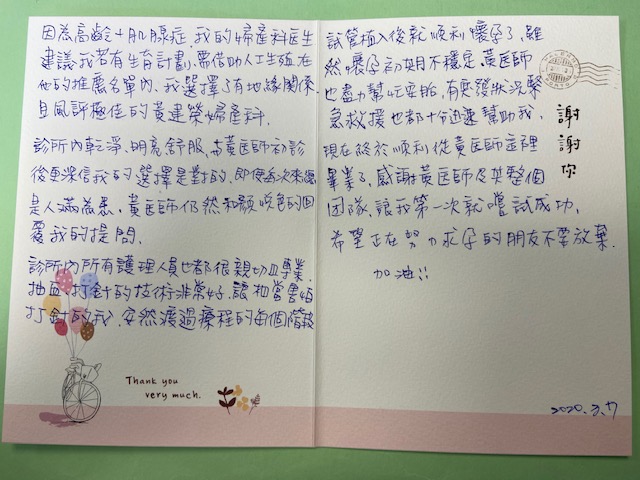 因為高齡+肌腺症,我的婦產科医生
建議我若有生育計劃,需借助人工生殖,在
他的推薦名單內,我選擇了有地緣關係
且風評極佳的黃建榮婦產科.
診所內乾淨、明亮舒服,与黃医師初診
後更深信我的選擇是對的,即使每次來診
是人滿為患,黃医師仍然和顏悅色的回
覆我的提問.
診所內所有護理人員也都很親切且專業,
抽血、打針的技術非常好,讓相當害怕
打針的我,安然渡過療程的每個階段
Thank you
very much.
試管植入後就順利懷孕了,雖
然懷孕初期不穩定,黃医師
也盡力幫忙安胎,有突發狀況緊
急救援也都十分迅速幫助我,
現在終於順利從黃医師這裡
畢業了,感謝黃医師及其整個
團隊,讓我第一次就嘗試成功,
希望正在努力求孕的朋友不要放棄.
加油!!
謝謝你
2020.3.7